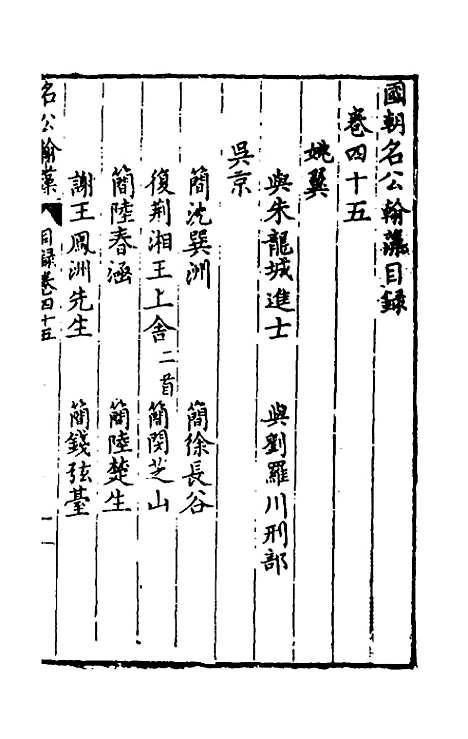 國朝名公翰藻目録
卷四十五
姚翼
與朱龍城進士　與劉羅川刑部
吳京
簡沈巽洲　簡徐長谷
復荆湘王上舍二首　簡閔芝山
簡陸春涵　簡陸楚生
謝王鳳洲先生　簡錢弦臺
名公翰藻　目録卷四十五　一